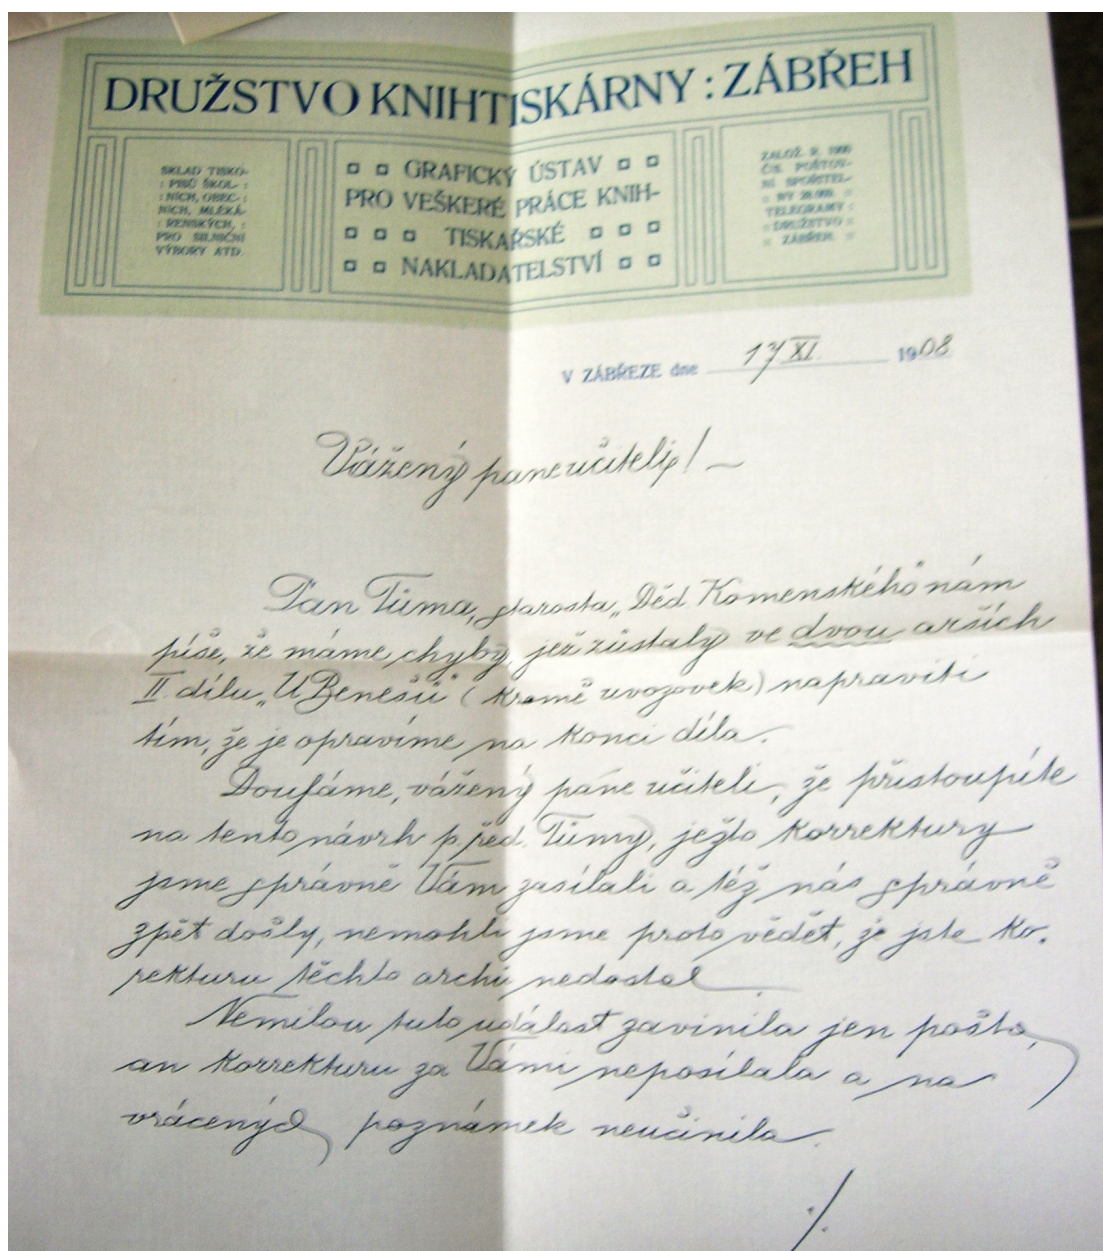 DRUŽSTVO KNIHTISKÁRNY : ZÁBŘEH
SKLAD TISKO-
: PISŮ ŠKOL- :
: NÍCH, OBEC- :
NÍCH, MLÉKÁ-
: RENSKÝCH, :
PRO SILNIČNÍ
VÝBORY ATD.
GRAFICKÝ ÚSTAV
PRO VEŠKERÉ PRÁCE KNIH-
TISKAŘSKÉ
NAKLADATELSTVÍ
ZALOŽ. R. 1900
ČÍS. POŠTOV-
NÍ SPOŘITEL-
NY
TELEGRAMY :
: DRUŽSTVO :
ZÁBŘEH
V ZÁBŘEZE dne 17 XI. 1908
Vážený pane učiteli! —
Pan Tůma, starosta „Děd Komenského" nám
píše, že máme chyby, jež zůstaly ve dvou arších
II. dílu „U Benešů" (kromě uvozovek) napraviti
tím, že je opravíme na konci díla.
Doufáme, vážený pane učiteli, že přistoupíte
na tento návrh p. řed. Tůmy, ježto korrektury
jsme správně Vám zasílali a též nás správně
zpět došly, nemohli jsme proto vědět, že jste ko-
rekturu těchto archů nedostal.
Nemilou tuto událost zavinila jen pošta,
an korrekturu za Vámi neposílala a na
vrácených poznámek neučinila.
./.